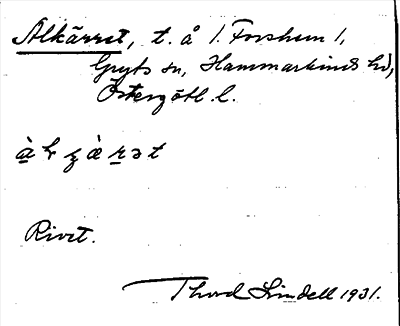 Alkärret, t. å / Forshem /,
Gryts sn, Hammarkinds hd,
Östergötl. l.
Rivet.
Thord Lindell 1931.